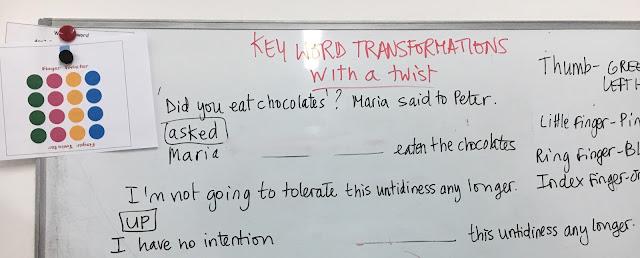 Finger Twister
Finger Twister
KEY WORD TRANSFORMATIONS
with a twist
'Did you eat chocolates'? Maria said to Peter.
asked
Maria ____ ____ eaten the chocolates
I'm not going to tolerate this untidiness any longer.
UP
I have no intention ________ this untidiness any longer.
Thumb- GREE
LEFT H
Little finger-Pin
Ring finger-BL
Index finger-or